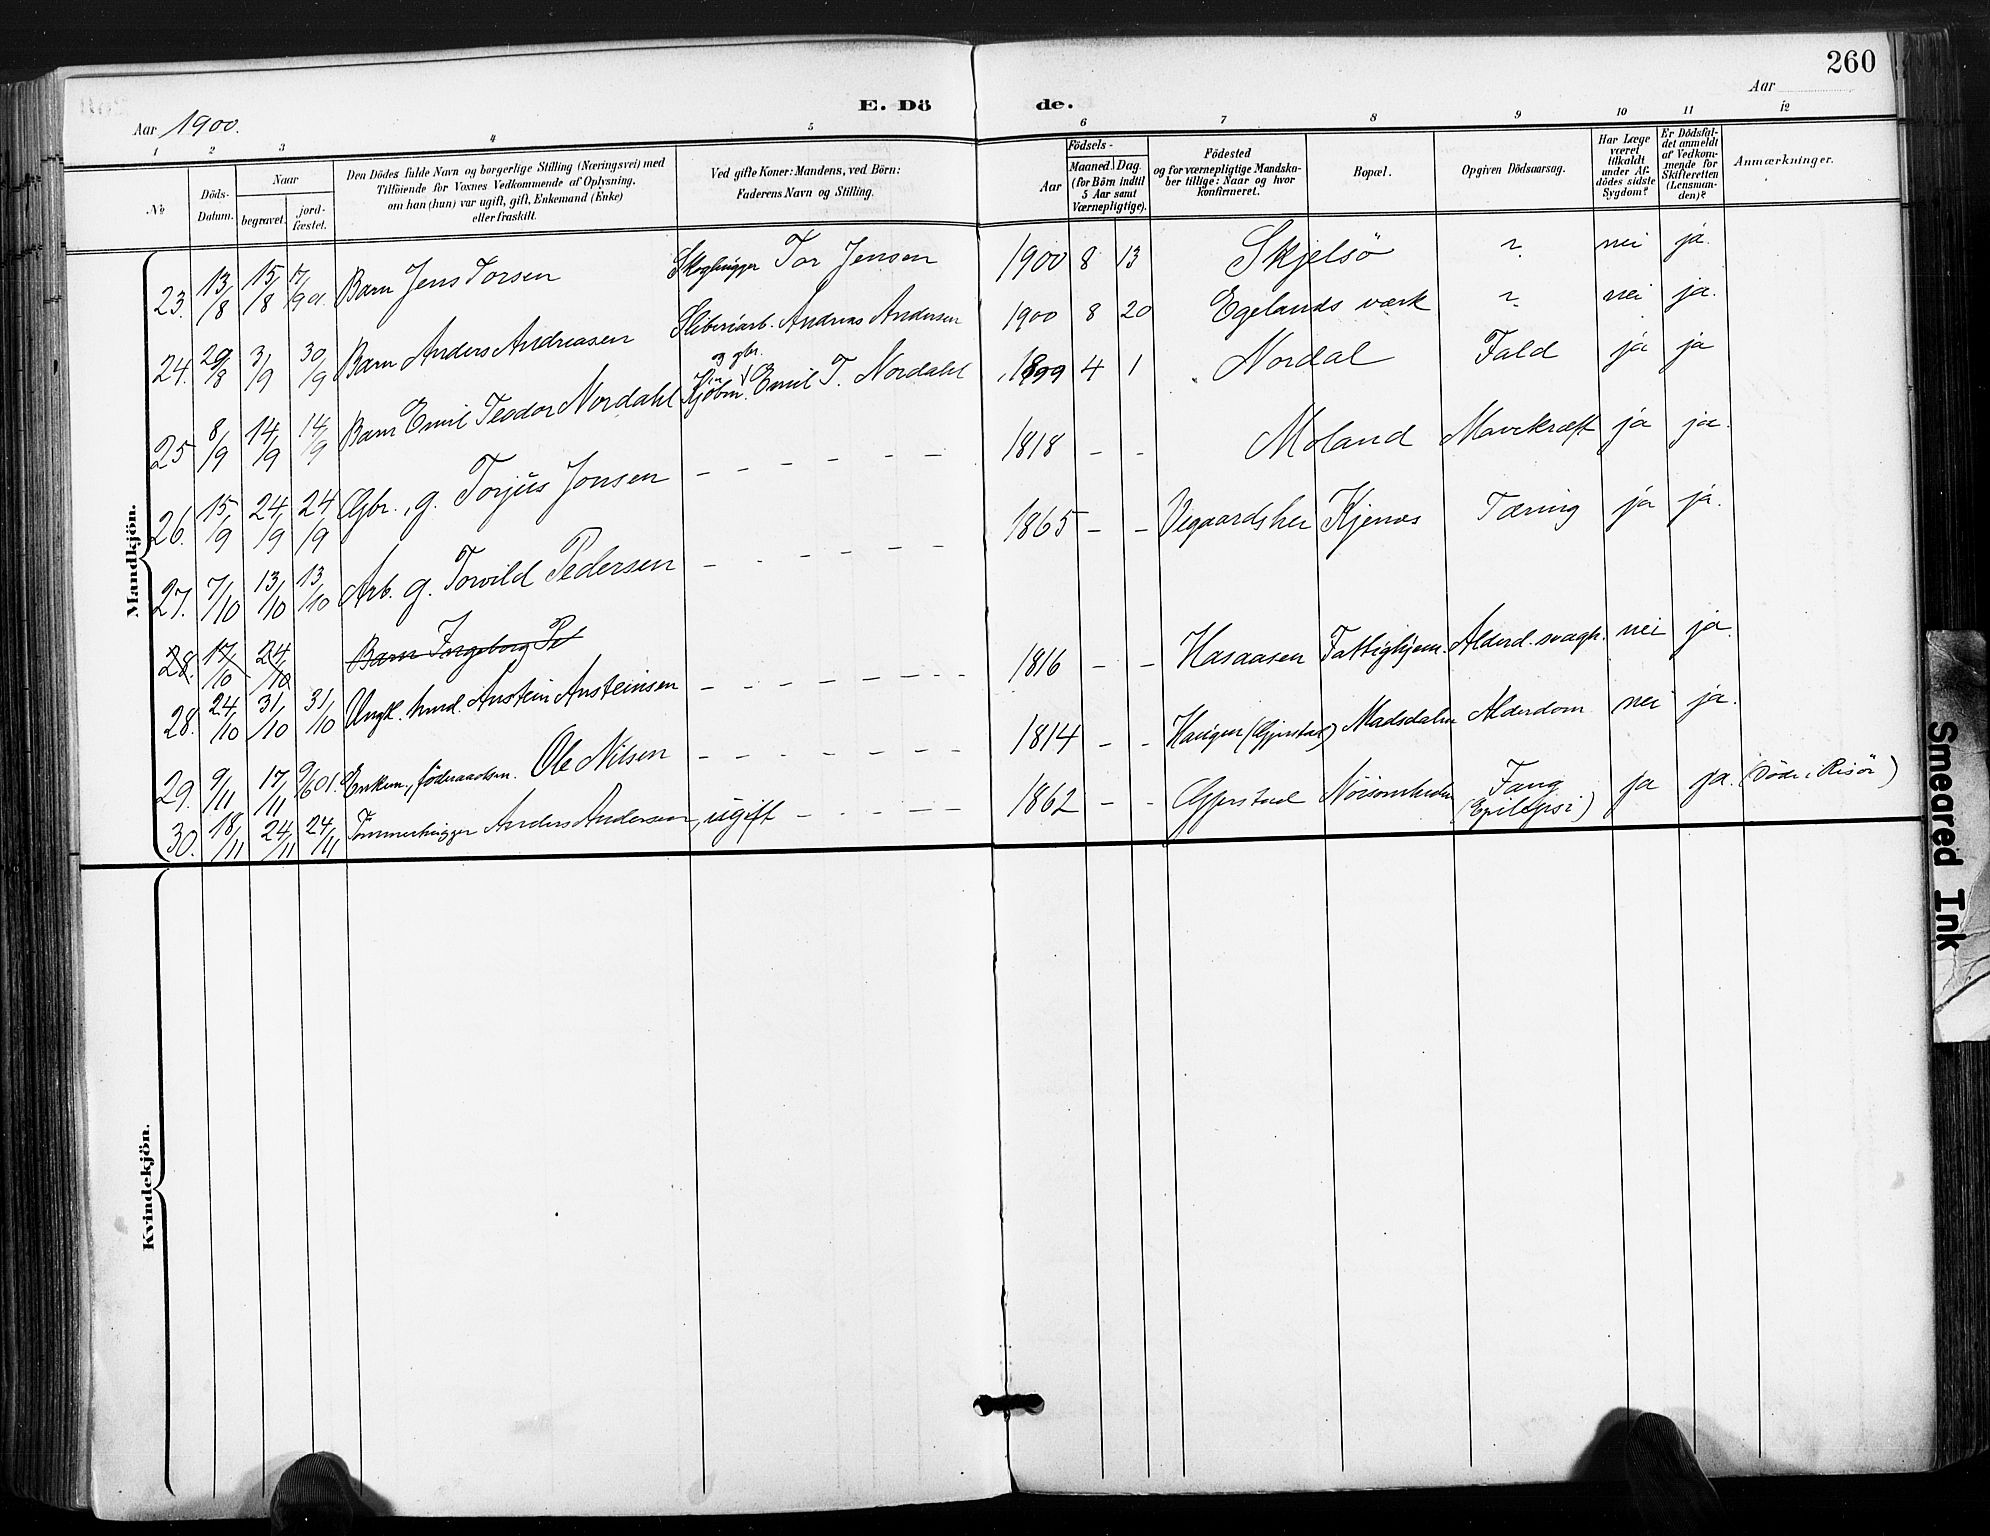 260
E. Dö de.
Aar 1900.
Aar
1 2 3 4 5 6 7 8 9 10 11 12
No
Döds-Datum.
Naar
begravet.
jord-fæstet.
Den Dödes fulde Navn og borgerlige Stilling (Næringsvei) med
Tilföiende for Voxnes Vedkommende af Oplysning,
om han (hun) var ugift, gift, Enkemand (Enke)
eller fraskilt.
Ved gifte Koner: Mandens, ved Börn:
Faderens Navn og Stilling.
Födsels-
Aar
Maaned. Dag.
(for Börn indtil
5 Aar samt
Værnepligtige).
Födested
og for værnepligtige Mandskaber tillige: Naar og hvor
konfirmeret.
Bopæl.
Opgiven Dödsaarsag.
Har Læge
været
tilkaldt
under Afdödes sidste
Sygdom?
Er Dödsfaldet anmeldt
af Vedkommende for
Skifteretten
(Lensmanden)?
Anmærkninger.
Mandkjön.
23. 13/8 15/8 17/1901. Barn Jens Torsen Skoghugger Tor Jensen 1900 8 13 Skjelsö ? nei ja.
24. 29/8 3/9 30/9 Barn Anders Andreasen Sliberiarb. Andreas Andersen 1900 8 20 Egelands værk ? nei ja.
25 8/9 14/9 14/9 Barn Emil Teodor Nordahl Kjöbm. og gbr. Emil T. Nordahl 1899 4 1 Nordal Fald ja ja
26. 15/9 24/9 24/9 Gbr., g. Torjus Jonsen – – – – – – 1818 – – Moland Mavekræft ja ja.
27. 7/10 13/10 13/10 Arb. g. Torvild Pedersen – – – – – – 1865 – – Vegaardshei Kjenæs Tæring ja ja.
28. 17/10 24/10 Barn Ingeborg Pet
28. 24/10 31/10 31/10 Ungk. Anstein Ansteinsen – – – – – – 1816 – – Hasaasen Fattighjem. Alderd. svagh. nei ja.
29. 9/11 17/11 Enkem., föderaadsm. Ole Nilsen – – – – – – 1814 – – Haugen (Gjerstad) Madsdalen Alderdom nei ja.
30. 18/11 24/11 24/11 Tömmerhugger Anders Andersen, ugift – – – – – 1862 – – Gjerstad Fang (Epilepsi) ja ja. (Döde i Risör)
Kvindekjön.
Smeared Ink